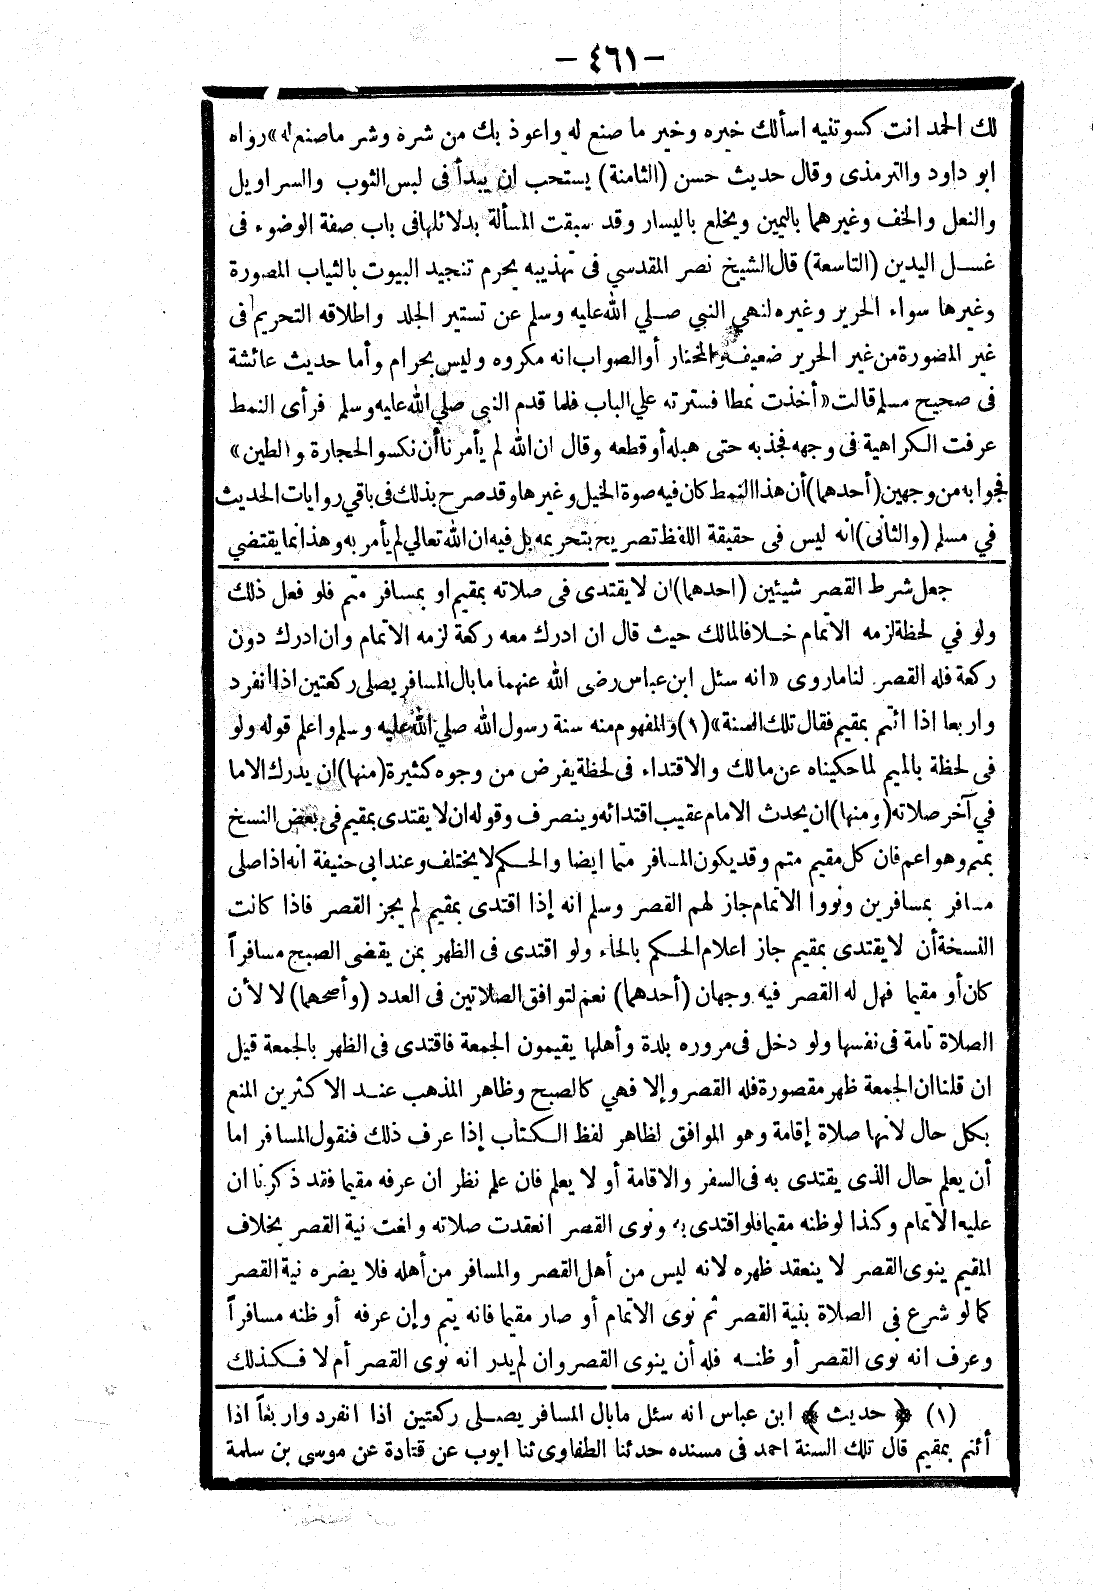 — ٤٦١ —
لك الحمد انت كسوتنيه اسألك خيره وخير ما صنع له واعوذ بك من شره وشر ماصنع له» رواه
ابو داود والترمذى وقال حديث حسن (الثامنة) يستحب ان يبدأ فى لبس الثوب والسراويل
والنعل والخف وغيرهما باليمين ويخلع باليسار وقد سبقت المسألة بدلائلها فى باب صفة الوضوء فى
غسل اليدين (التاسعة) قال الشيخ نصر المقدسي فى تهذيبه يحرم تنجيد البيوت بالثياب المصورة
وغيرها سواء الحرير وغيره لنهي النبي صلي الله عليه وسلم عن تستير الجلد واطلاقه التحريم فى
غير المصورة من غير الحرير ضعيف والمختار أو الصواب انه مكروه وليس بحرام وأما حديث عائشة
فى صحيح مسلم قالت «أخذت نمطا فسترته علي الباب فلما قدم النبى صلي الله عليه وسلم فرأى النمط
عرفت الكراهية فى وجهه فجذبه حتى هبله أو قطعه وقال ان الله لم يأمرنا أن نكسو الحجارة والطين»
فجوابه من وجهين (أحدهما) أن هذا النمط كان فيه صوة الخيل وغيرها وقد صرح بذلك فى باقي روايات الحديث
في مسلم (والثانى) انه ليس فى حقيقة اللفظ تصريح بتحريمه بل فيه ان الله تعالي لم يأمر به وهذا نما يقتضي
جعل شرط القصر شيئين (احدهما) ان لا يقتدى فى صلاته بمقيم او بمسافر متم فلو فعل ذلك
ولو في لحظة لزمه الاتمام خلافا لمالك حيث قال ان ادرك معه ركعة لزمه الاتمام وان ادرك دون
ركعة فله القصر لنا ما روى «انه سئل ابن عباس رضى الله عنهما ما بال المسافر يصلى ركعتين اذا انفرد
واربعا اذا ائتم بمقيم فقال تلك السنة» (١) والمفهوم منه سنة رسول الله صلي الله عليه وسلم واعلم قوله ولو
فى لحظة بالميم لما حكيناه عن مالك والاقتداء فى لحظة يفرض من وجوه كثيرة (منها) ان يدرك الاما
في آخر صلاته (ومنها) ان يحدث الامام عقيب اقتدائه وينصرف وقوله ان لا يقتدى بمقيم فى بعض النسخ
بمتم وهو اعم فان كل مقيم متم وقد يكون المسافر متما ايضا والحكم لا يختلف وعند ابى حنيفة انه اذا صلى
مسافر بمسافرين ونووا الاتمام جاز لهم القصر وسلم انه إذا اقتدى بمقيم لم يجز القصر فاذا كانت
النسخة أن لا يقتدى بمقيم جاز اعلام الحكم بالحاء ولو اقتدى فى الظهر بمن يقضى الصبح مسافراً
كان أو مقيما فهل له القصر فيه وجهان (أحدهما) نعم لتوافق الصلاتين فى العدد (وأصحهما) لا لأن
الصلاة تامة فى نفسها ولو دخل فى مروره بلدة وأهلها يقيمون الجمعة فاقتدى فى الظهر بالجمعة قيل
ان قلنا ان الجمعة ظهر مقصورة فله القصر وإلا فهي كالصبح وظاهر المذهب عند الاكثرين المنع
بكل حال لانها صلاة إقامة وهو الموافق لظاهر لفظ الكتاب إذا عرف ذلك فنقول المسافر اما
أن يعلم حال الذى يقتدى به فى السفر والاقامة أو لا يعلم فان علم نظر ان عرفه مقيما فقد ذكرنا ان
عليه الاتمام وكذا لو ظنه مقيما فلو اقتدى به ونوى القصر انعقدت صلاته ولغت نية القصر بخلاف
المقيم ينوى القصر لا ينعقد ظهره لانه ليس من أهل القصر والمسافر من أهله فلا يضره نية القصر
كما لو شرع فى الصلاة بنية القصر ثم نوى الاتمام أو صار مقيما فانه يتم وإن عرفه أو ظنه مسافراً
وعرف انه نوى القصر أو ظنه فله أن ينوى القصر وان لم يدر انه نوى القصر أم لا فكذلك
(١) ﴿ حديث ﴾ ابن عباس انه سئل ما بال المسافر يصلى ركعتين اذا انفرد واربعاً اذا
أئتم بمقيم قال تلك السنة احمد فى مسنده حدثنا الطفاوى ثنا ايوب عن قتادة عن موسى بن سلمة